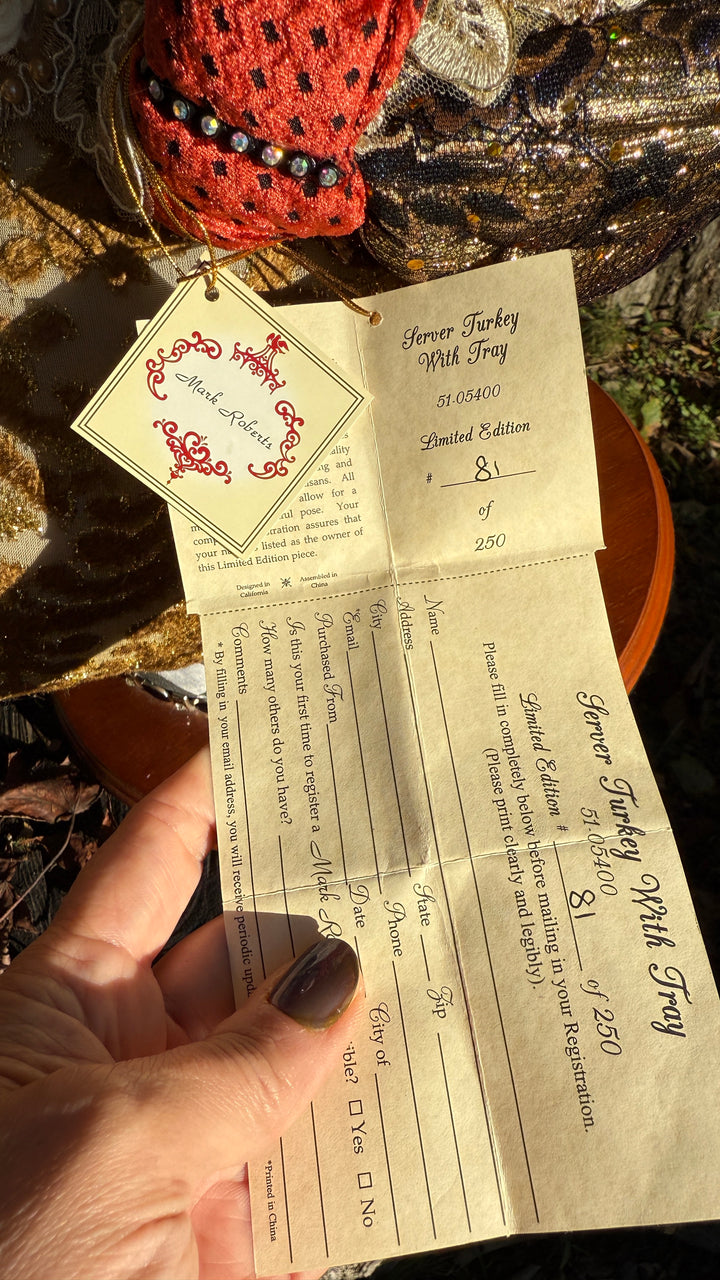 Mark Roberts
Server Turkey
With Tray
51-05400
Limited Edition
# 81
of
250
ality
and
sans. All
allow for a
ful pose. Your
ration assures that
your listed as the owner of
this Limited Edition piece.
Designed in
California
Assembled in
China
Server Turkey With Tray
51-05400
Limited Edition # 81 of 250
Please fill in completely below before mailing in your Registration.
(Please print clearly and legibly).
Name
Address
City State Zip
*Email Phone
Purchased From Date City of
Is this your first time to register a Mark ible? ☐ Yes ☐ No
How many others do you have?
Comments
* By filling in your email address, you will receive periodic
*Printed in China